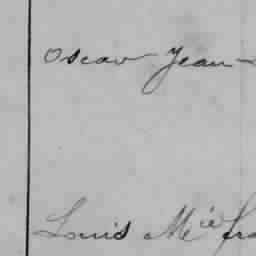 Oscar Jean-
Louis Mcie